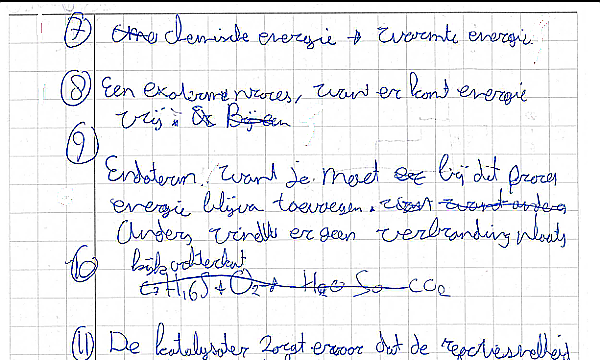 7 chemische energie → warmte energie
8 Een exoterme proces, want er komt energie
vrij
9
Endoterm, want je moet bij dit proces
energie blijven toevoegen.
Anders vindt er geen verbranding plaats
10 kijk achterkant
C7H16S + O2 → H2O SO CO2
11 De katalysator zorgt ervoor dat de reactiesnelheid